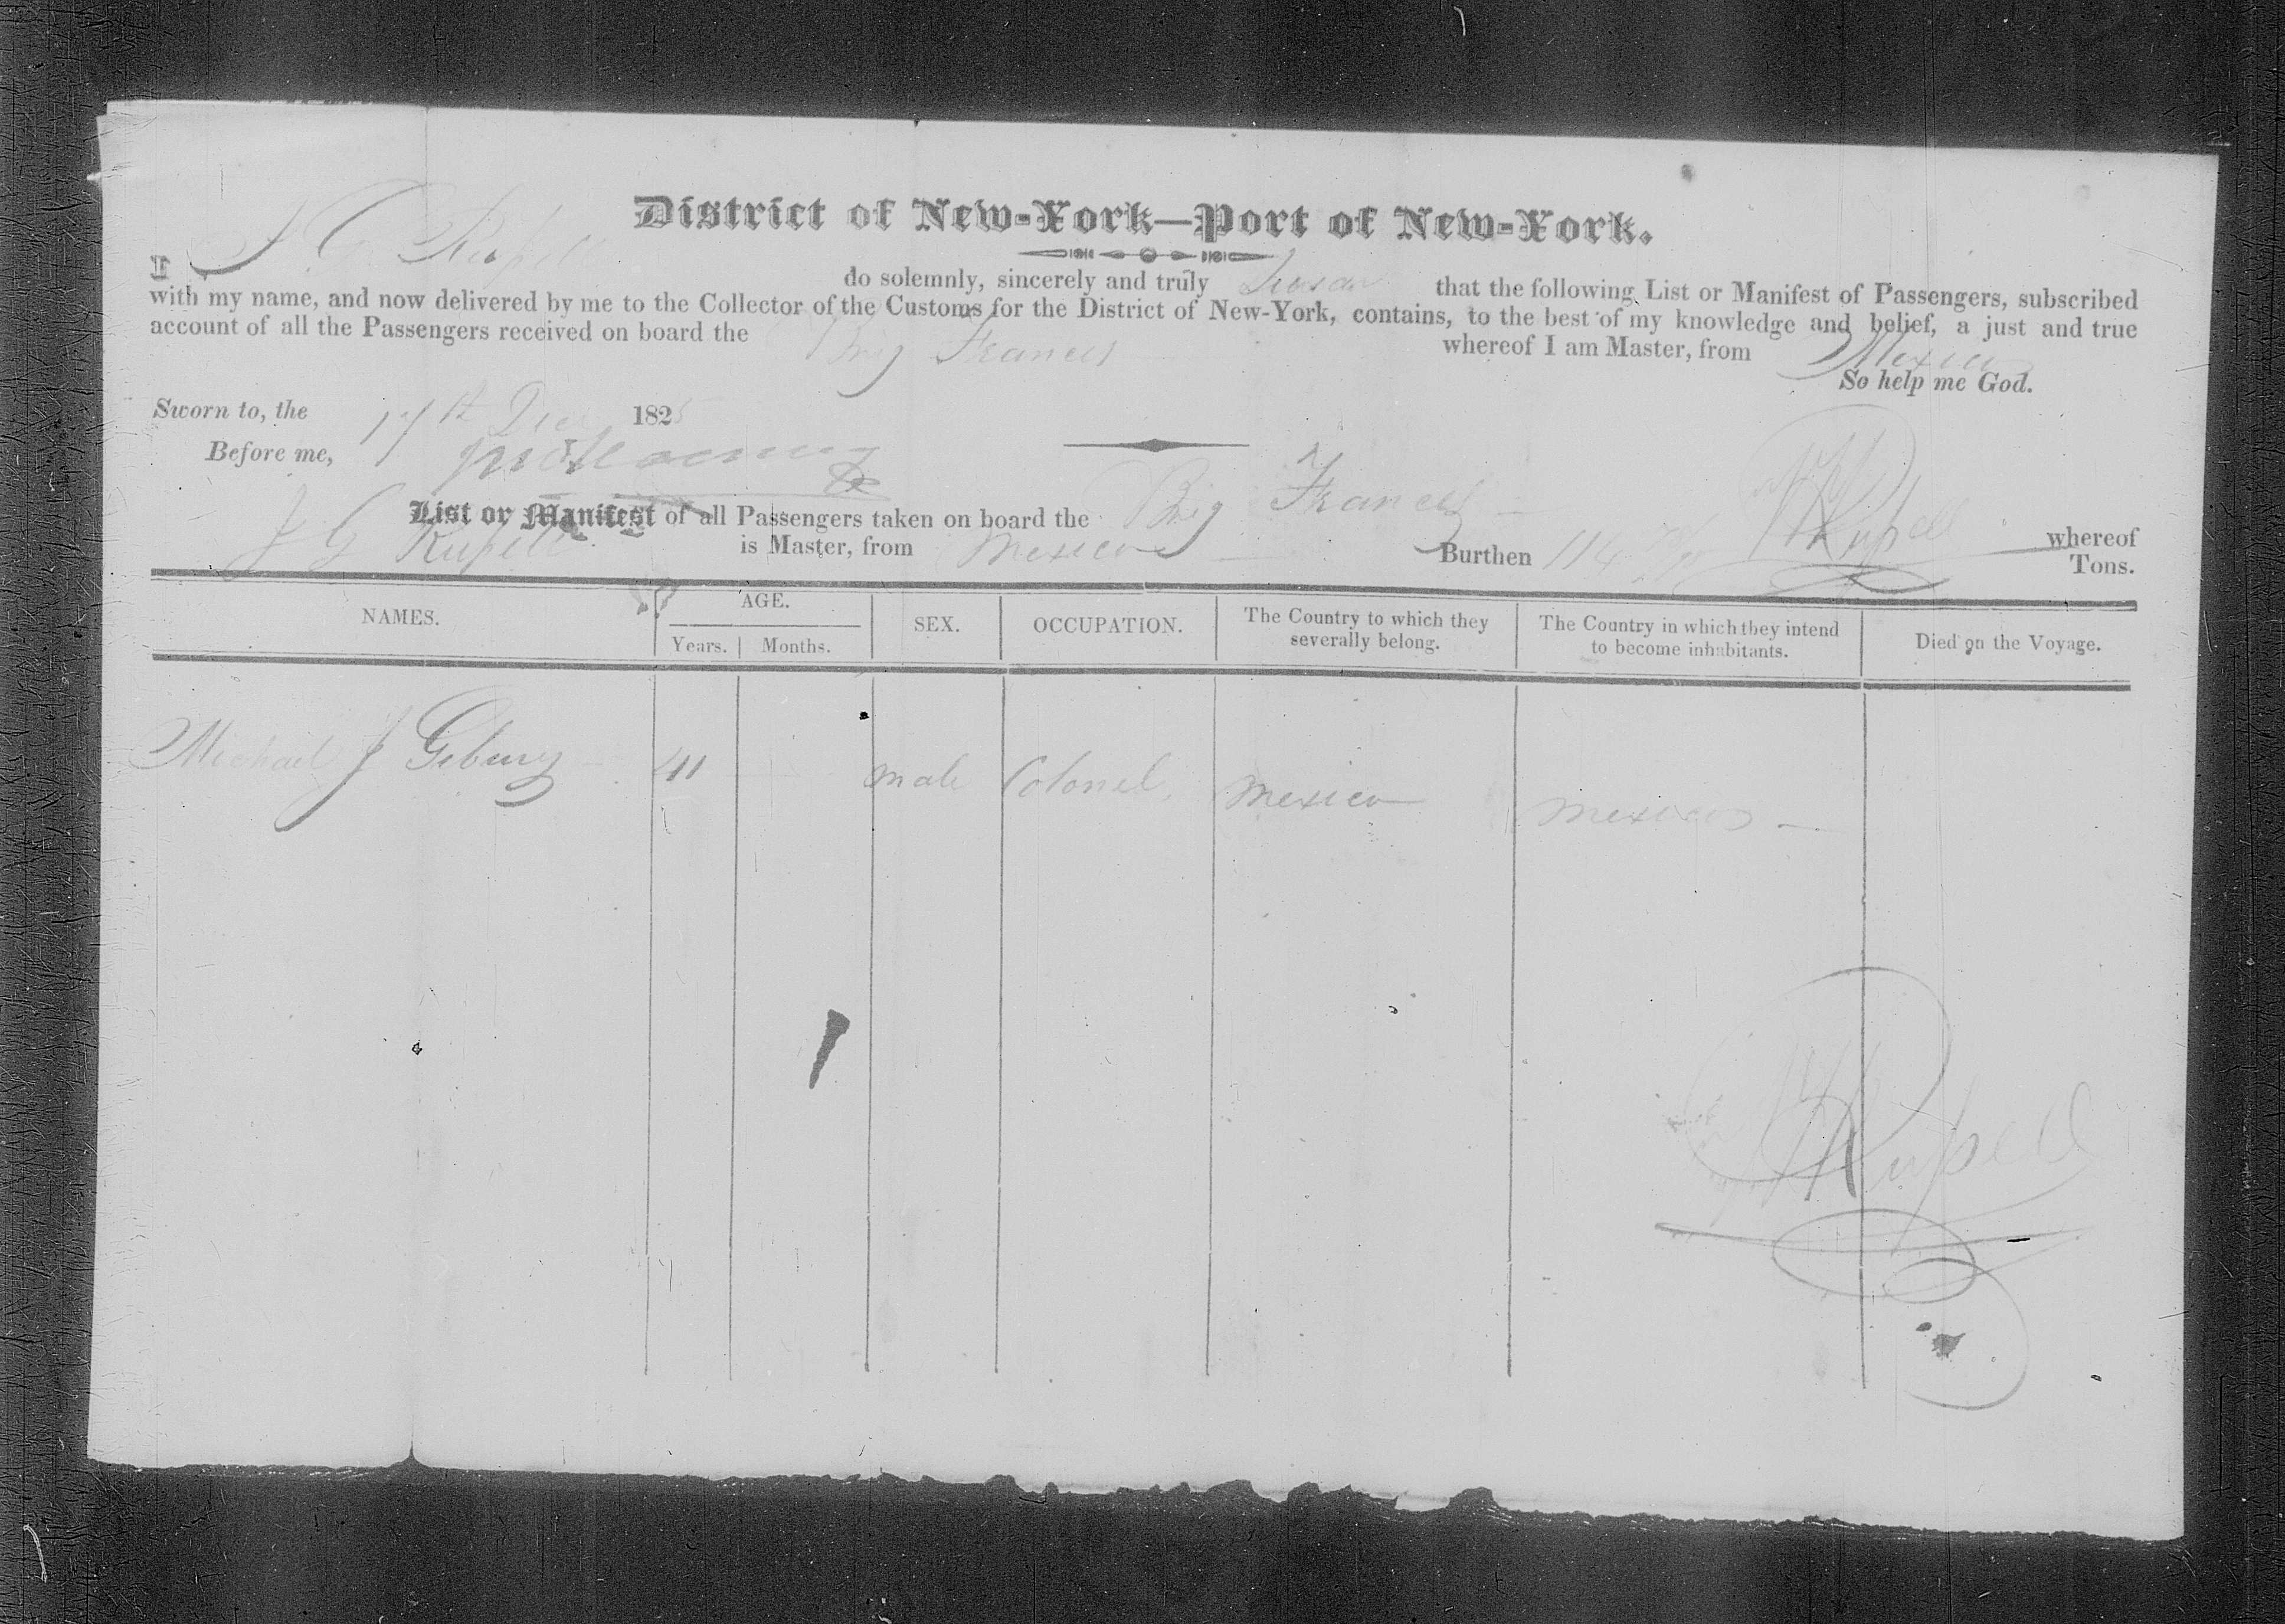 District of New-York—Port of New-York.
I J G Russell do solemnly, sincerely and truly Swear that the following List or Manifest of Passengers, subscribed
with my name, and now delivered by me to the Collector of the Customs for the District of New-York, contains, to the best of my knowledge and belief, a just and true
account of all the Passengers received on board the Brig Frances whereof I am Master, from Mexico
So help me God.
Sworn to, the 17th Dec 1825
Before me,
J G Russell
List or Manifest of all Passengers taken on board the Brig Frances whereof
J G Russell is Master, from Mexico Burthen 114 Tons.
NAMES. AGE. SEX. OCCUPATION. The Country to which they severally belong. The Country in which they intend to become inhabitants. Died on the Voyage.
Years. Months.
Michael J 41 male Colonel Mexico Mexico
J G Russell